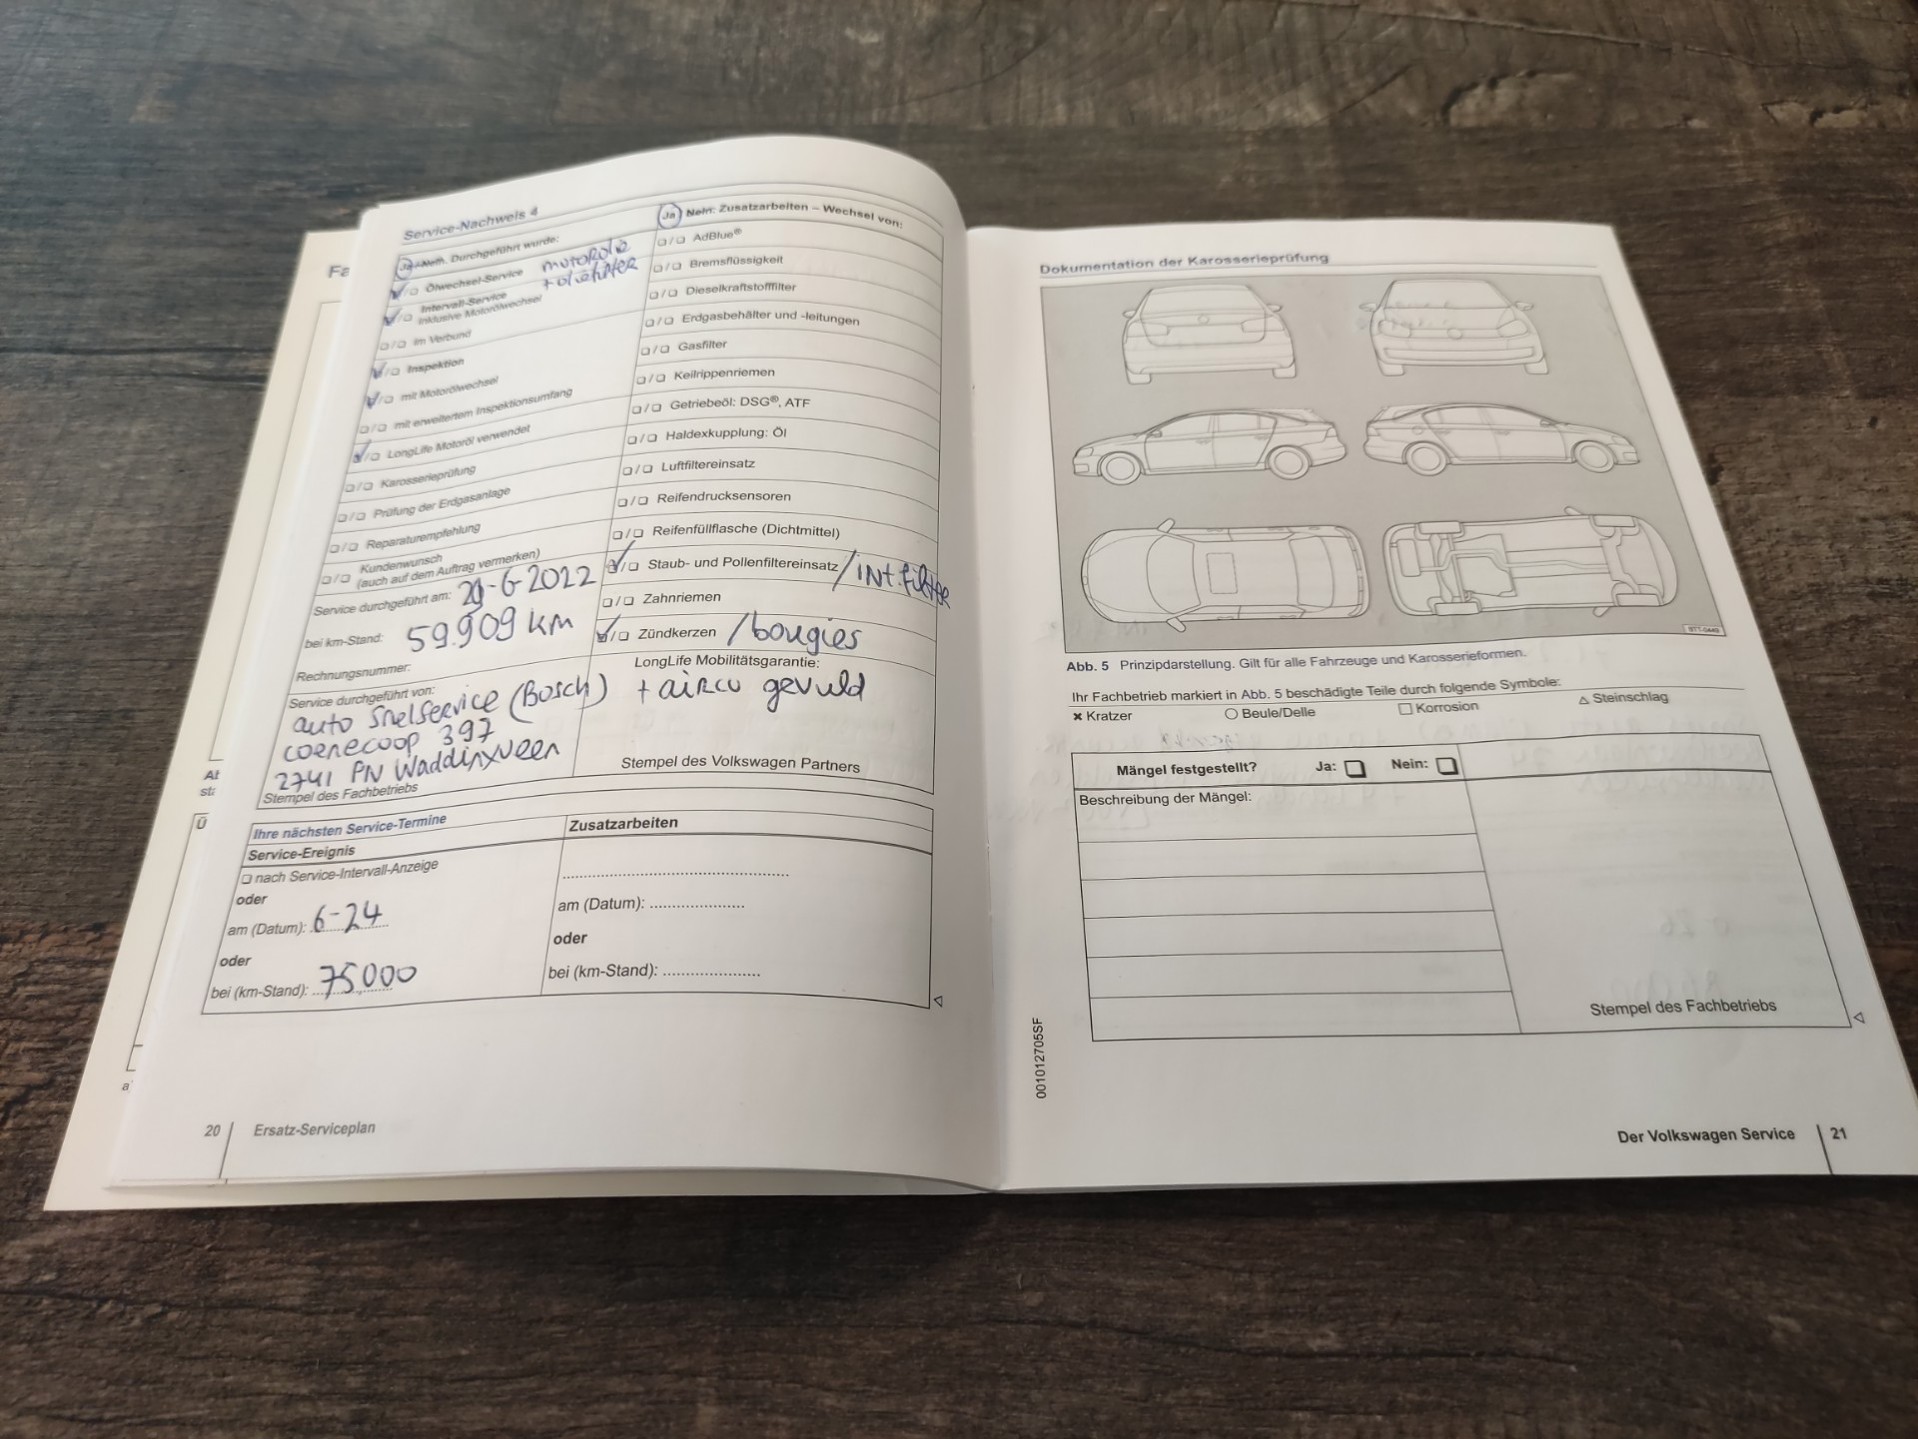 Fa
At
st:
Ü
a)
Service-Nachweis 4
Ja Nein: Durchgeführt wurde:
Ölwechsel-Service motorolie
+ oliefilter
Intervall-Service
inklusive Motorölwechsel
Im Verbund
Inspektion
mit Motorölwechsel
mit erweitertem Inspektionsumfang
LongLife Motoröl verwendet
Karosserieprüfung
Prüfung der Erdgasanlage
Reparaturempfehlung
Kundenwunsch
(auch auf dem Auftrag vermerken)
Service durchgeführt am: 29-6-2022
bei km-Stand: 59.909 km
Rechnungsnummer:
Service durchgeführt von:
auto Snelservice (Bosch)
coenecoop 397
2741 PN Waddinxveen
Stempel des Fachbetriebs
Ja Nein: Zusatzarbeiten – Wechsel von:
AdBlue®
Bremsflüssigkeit
Dieselkraftstofffilter
Erdgasbehälter und -leitungen
Gasfilter
Keilrippenriemen
Getriebeöl: DSG®, ATF
Haldexkupplung: Öl
Luftfiltereinsatz
Reifendrucksensoren
Reifenfüllflasche (Dichtmittel)
Staub- und Pollenfiltereinsatz /int.filter
Zahnriemen
Zündkerzen /bougies
LongLife Mobilitätsgarantie:
+ airco gevuld
Stempel des Volkswagen Partners
Ihre nächsten Service-Termine
Service-Ereignis
nach Service-Intervall-Anzeige
oder
am (Datum): 6-24
oder
bei (km-Stand): 75.000
Zusatzarbeiten
am (Datum):
oder
bei (km-Stand):
20 Ersatz-Serviceplan
Dokumentation der Karosserieprüfung
Abb. 5 Prinzipdarstellung. Gilt für alle Fahrzeuge und Karosserieformen.
Ihr Fachbetrieb markiert in Abb. 5 beschädigte Teile durch folgende Symbole:
× Kratzer ○ Beule/Delle □ Korrosion △ Steinschlag
Mängel festgestellt? Ja: Nein:
Beschreibung der Mängel:
Stempel des Fachbetriebs
001012705SF
Der Volkswagen Service 21